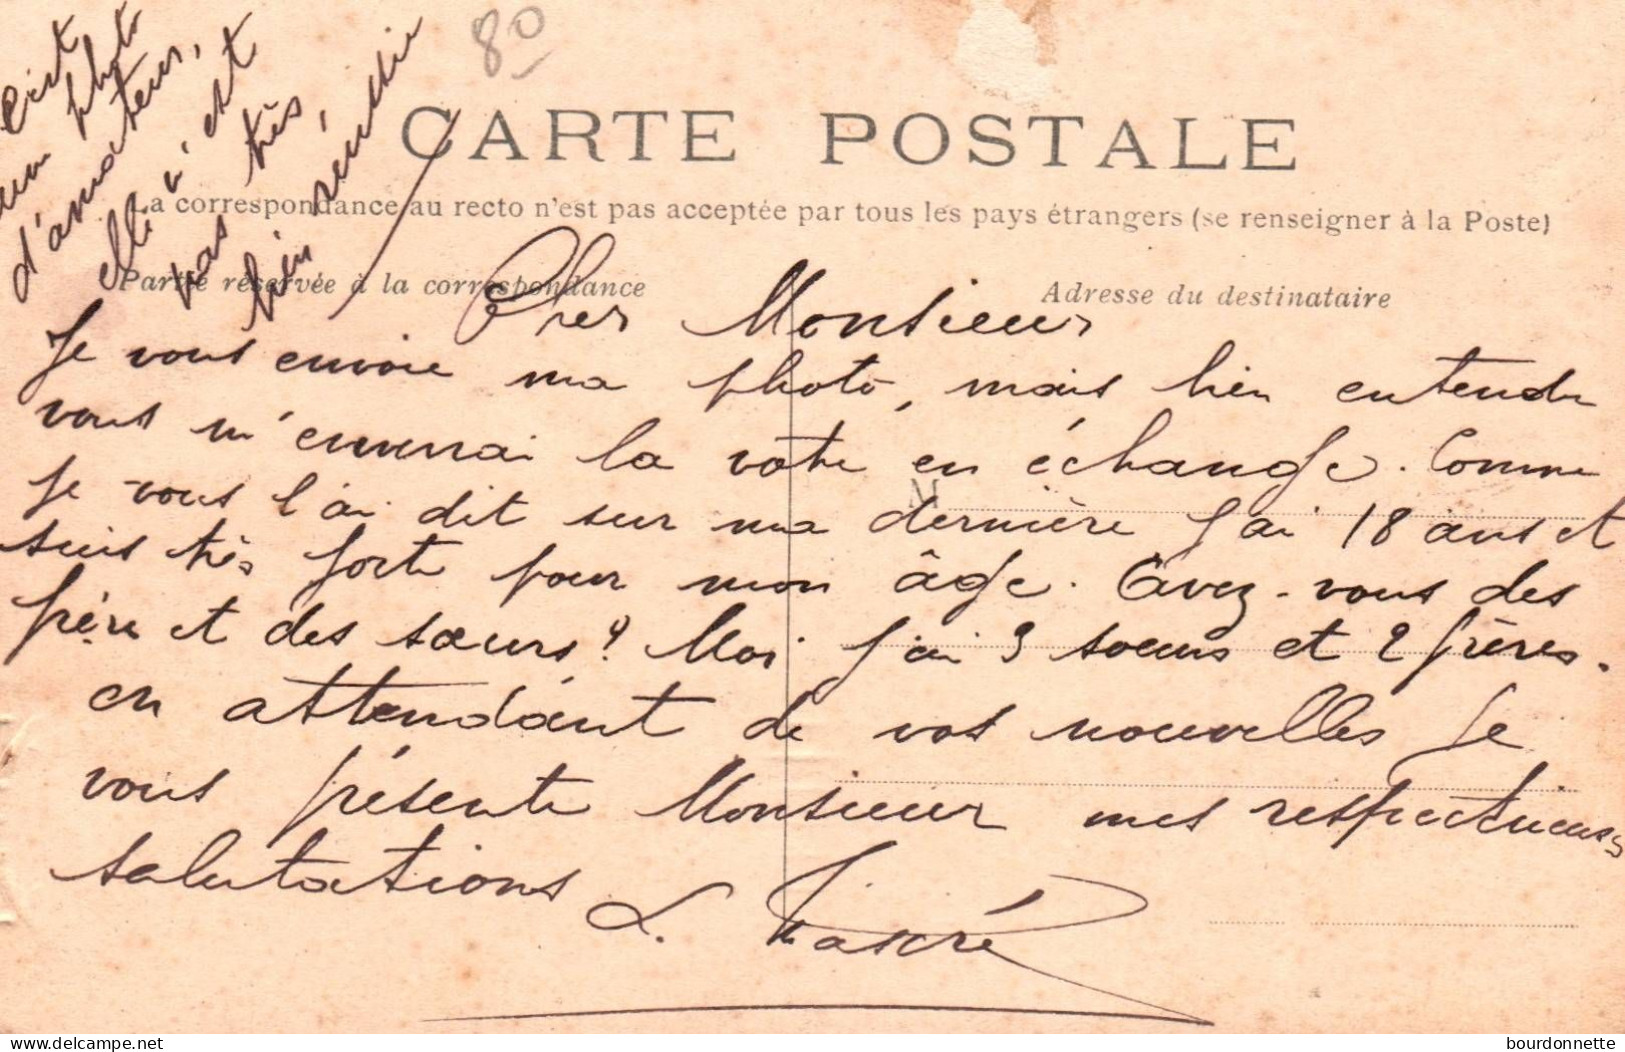 80
C'est
une photo
d'amateur,
elle n'est
pas très,
bien réussie
CARTE POSTALE
La correspondance au recto n'est pas acceptée par tous les pays étrangers (se renseigner à la Poste)
Partie réservée à la correspondance
Adresse du destinataire
Cher Monsieur
Je vous envoie ma photo, mais bien entendu
vous m'enverrai la votre en échange. Comme
je vous l'ai dit sur ma dernière j'ai 18 ans et
suis très forte pour mon âge. Avez-vous des
frère et des sœurs? Moi j'ai 3 sœurs et 2 frères.
en attendant de vos nouvelles je
vous présente Monsieur mes respectueuses
salutations
L.
bourdonnette